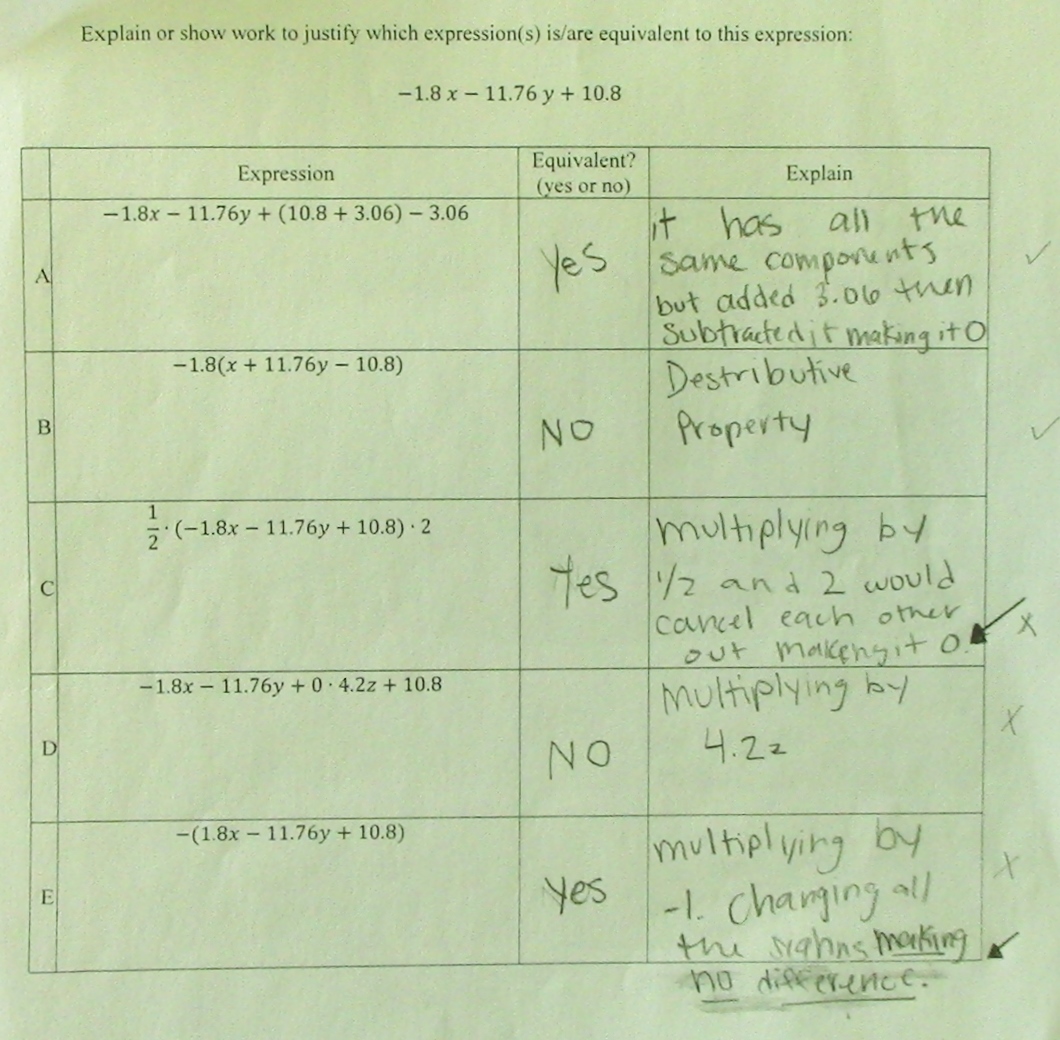 Explain or show work to justify which expression(s) is/are equivalent to this expression:
−1.8 x − 11.76 y + 10.8
Expression
Equivalent?
(yes or no)
Explain
A
−1.8x − 11.76y + (10.8 + 3.06) − 3.06
Yes
it has all the
same components
but added 3.06 then
subtracted it making it 0
✓
B
−1.8(x + 11.76y − 10.8)
NO
Destributive
Property
✓
C
1/2 · (−1.8x − 11.76y + 10.8) · 2
Yes
Multiplying by
1/2 and 2 would
cancel each other
out making it 0.
X
D
−1.8x − 11.76y + 0 · 4.2z + 10.8
NO
Multiplying by
4.2z
X
E
−(1.8x − 11.76y + 10.8)
Yes
multiplying by
-1. Changing all
the making
no difference.
X